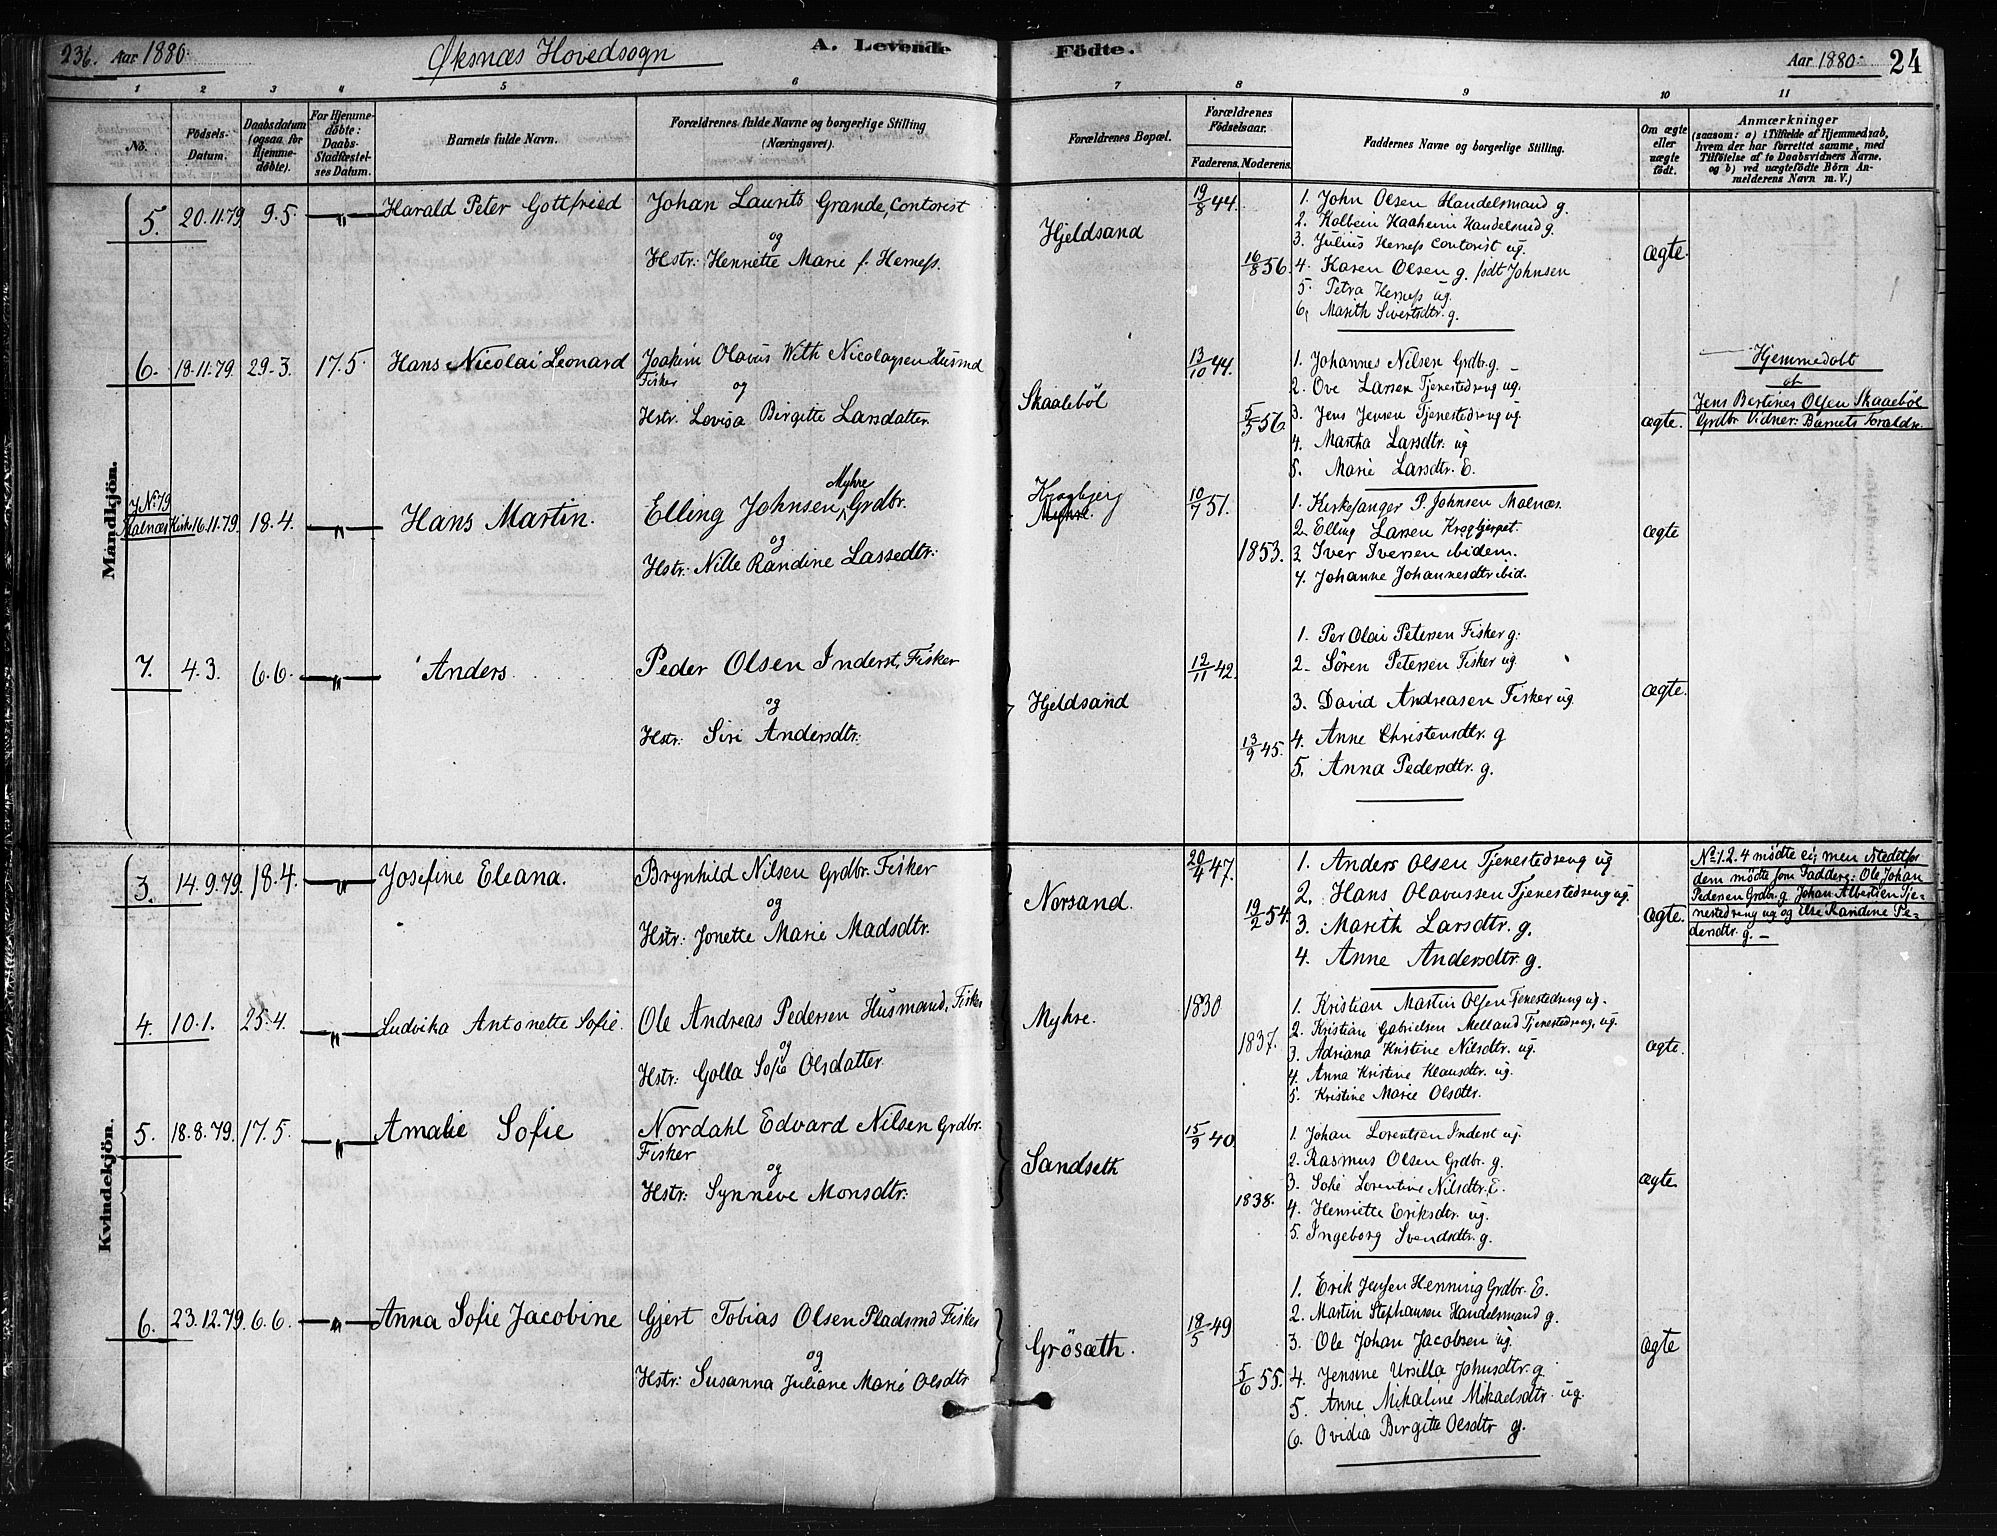 236. Aar 1880.
Øksnæs Hovedsogn
A. Levende Födte.
Aar 1880. 24
1 2 3 4 5 6 7 8 9 10 11
No.
Födsels-Datum.
Daabsdatum (ogsaa for Hjemme-döbte).
For Hjemme-döbte: Daabs-Stadfæstel-ses Datum.
Barnets fulde Navn.
Forældrenes fulde Navne og borgerlige Stilling (Næringsvei).
Forældrenes Bopæl.
Forældrenes Födselsaar.
Faderens. Moderens.
Faddernes Navne og borgerlige Stilling.
Om ægte eller uægte födt.
Anmærkninger
(saasom: a) i Tilfælde af Hjemmedaab, hvem der har forrettet samme, med Tilföielse af to Daabsvidners Navne, og b) ved uægtefödte Börn An-melderens Navn m. V.)
Mandkjön.
5. 20.11.79 9.5. — " — Harald Peter Gottfried
Johan Laurits Grande, Contorist
og
Hstr: Henriette Marie f. Herness.
Hjeldsand
19/8 44.
16/8 56.
1. John Olsen Handelsmand g.
2. Kolbein Haaheim Handelsmd g.
3. Julius Herness Contorist ug.
4. Karen Olsen g. födt Johnsen
5. Petra Herness ug.
6. Marith Sivertsdtr. g.
ægte.
6. 19.11.79. 29.3. 17.5. Hans Nicolai Leonard
Joakim Olavus With Nicolaysen Husmd
Fisker
og
Hstr. Lovisa Birgitte Larsdatter.
Skaaleböl
13/10 44.
5/5 56.
1. Johannes Nilsen Grdbr g.
2. Ove Larsen Tjenestedreng ug.
3. Jens Jensen Tjenestedreng ug.
4. Martha Larsdtr. ug
5. Marie Larsdtr. E.
ægte.
Hjemmedöbt
af
Jens Bertines Olsen Skaaeböl
Grdbr. Vidner: Barnets Foraldre.
7 No. 79
Malnæs Kirke 16.11.79. 18.4. — " — Hans Martin.
Myhre
Elling Johnsen Grdbr.
og
Hstr: Nille Randine Lassedtr:
Krogbjerg
Myhre.
10/7 51.
1853.
1. Kirkesanger P. Johnsen Malnæs.
2. Elling Larsen Krogbjerget.
3 Iver Iversen ibidem.
4. Johanne Johannesdtr ibid.
ægte
7. 4.3. 6.6. — " — Anders.
Peder Olsen Inderst, Fisker
og
Hstr: Siri Andersdtr:
Hjeldsand
12/11 42.
13/9 45.
1. Per Olai Petersen Fisker g:
2- Sören Petersen Fisker ug.
3. David Andreasen Fisker ug.
4. Anne Christensdtr. g
5. Anna Pedersdtr. g.
ægte.
Kvindekjön.
3. 14.9.79. 18.4. — " — Josefine Eleana.
Brynhild Nilsen Grdbr. Fisker
og
Hstr: Jonette Marie Madsdtr.
Norsand.
20/4 47.
19/2 54.
1. Anders Olsen Tjenestedreng ug
2. Hans Olavussen Tjenestedreng ug.
3. Marith Larsdtr. g.
4. Anne Andersdtr. g.
ægte.
No. 1.2.4 mödte ei; men Istedetfor
dem mödte som Faddere: Ole Johan
Pedersen Grdbr. g. Johan Albertsen Tje-
nestedreng ug og Else Randine Pe-
dersdtr. g. —
4. 10.1. 25.4. — " — Ludvika Antonette Sofie.
Ole Andreas Pedersen Husmand, Fisker
og
Hstr: Golla Sofie Olsdatter.
Myhre.
1830
1837.
1. Kristian Martin Olsen Tjenestedreng ug.
2. Kristian Gabrielsen Melland Tjenestedreng, ug.
3. Adriana Kristine Nilsdtr. ug.
4. Anna Kristine Klausdtr. ug.
5. Kristine Marie Olsdtr.
ægte.
5. 18.8.79. 17.5. — " — Amalie Sofie
Nordahl Edvard Nilsen Grdbr.
Fisker
og
Hstr: Synneve Monsdtr:
Sandseth
15/9 40
1838.
1. Johan Lorentsen Inderst ug.
2. Rasmus Olsen Grdbr. g.
3. Sofie Lorentine Nilsdtr. E.
4. Henriette Eriksdtr. ug.
5. Ingeborg Svendsdtr. g.
ægte
6. 23.12.79. 6.6. — " — Anna Sofie Jacobine
Gjert Tobias Olsen Pladsmd Fisker
og
Hstr: Susanna Juliane Marie Olsdtr
Grösæth.
18/5 49
5/6 55.
1. Erik Jensen Henning Grdbr. E.
2. Martin Stephansen Handelsmand g.
3. Ole Johan Jacobsen ug.
4. Jensine Ursilla Johnsdtr. g.
5. Anne Mikaline Mikaelsdtr. ug.
6. Ovidia Birgitte Olsdtr g.
ægte